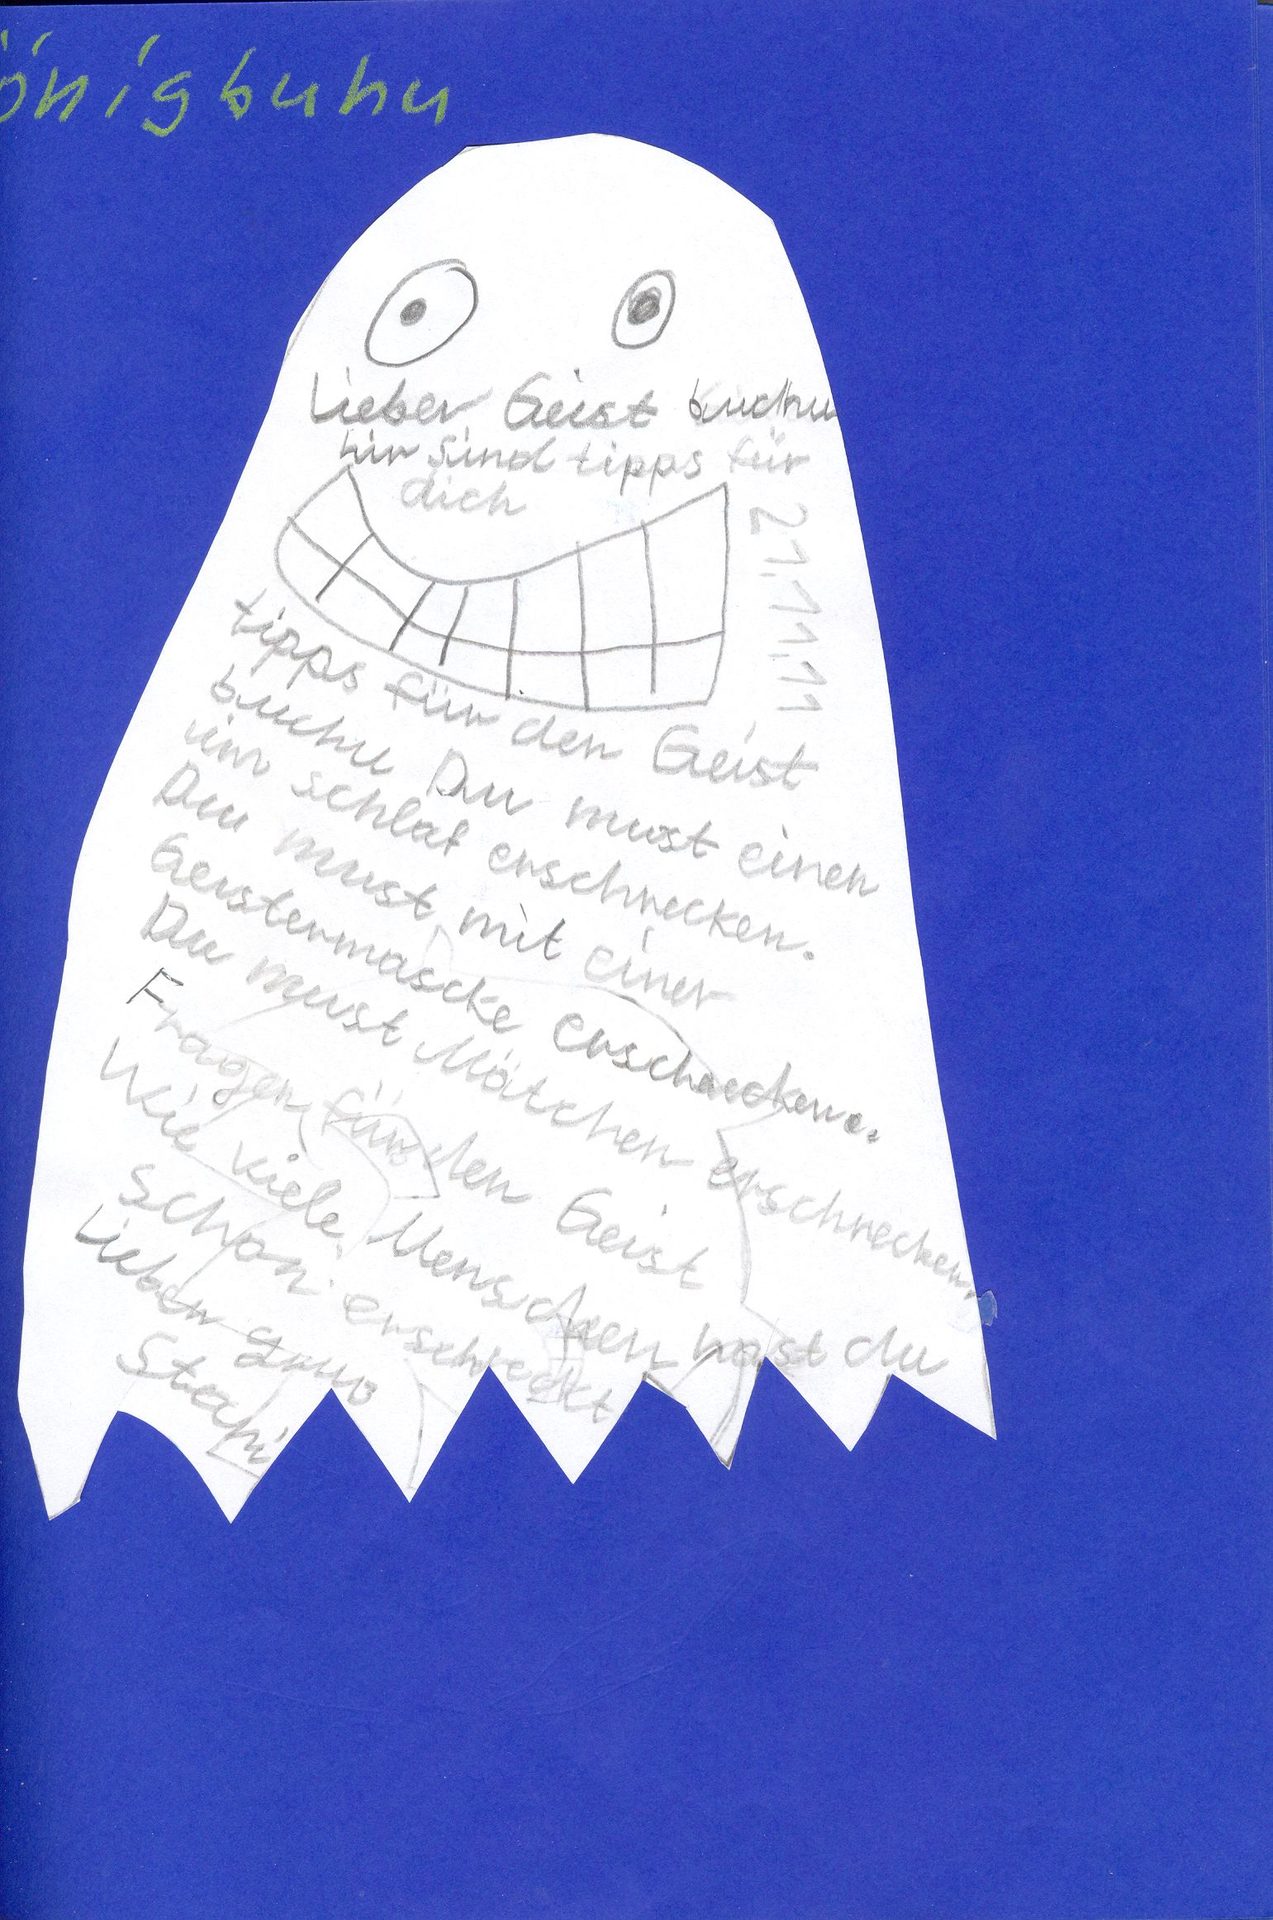 önigbuhu
Lieber Geist buchu
hir sind tipps für
dich
21.11.11
tipps für den Geist
buchu Du must einen
im schlaf erschrecken.
Du must mit einer
Geistermascke erschrecken.
Du must Mätchen erschrecken.
Fragen für den Geist
Wie viele Menschen hast du
schon erschreckt
Lieber grus
Stepi